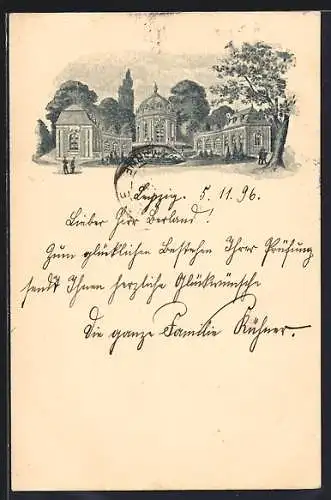 Leipzig. 5. 11. 96.
Lieber Herr Berland!
Zum glücklichen Bestehen Ihrer Prüfung
sendet Ihnen herzliche Glückwünsche
Die ganze Familie Kühner.